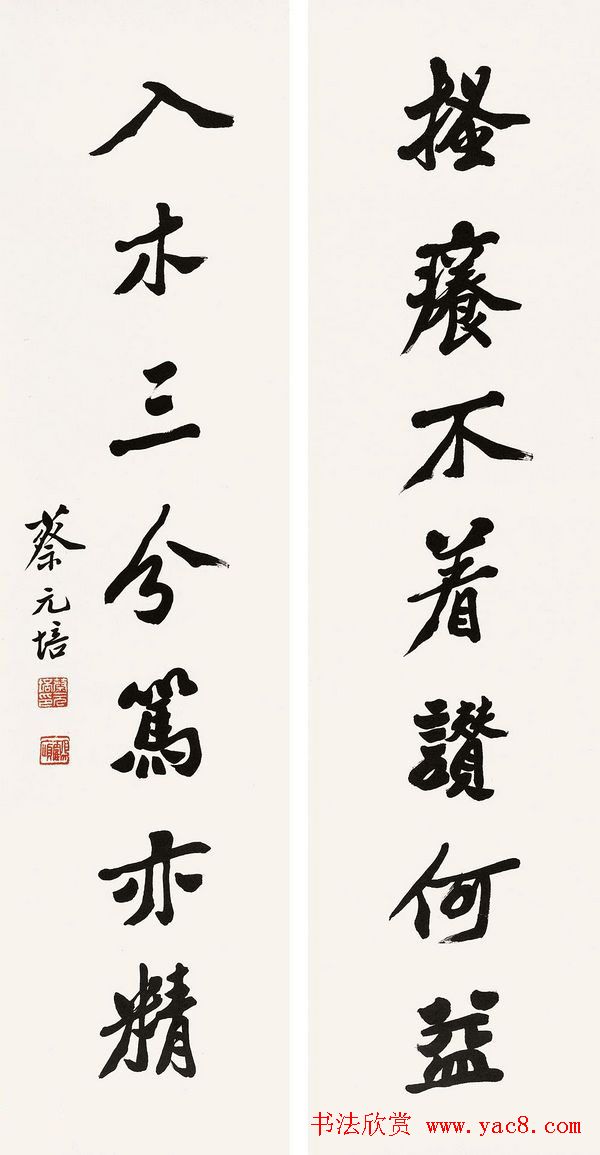 搔癢不着讚何益
入木三分駡亦精
蔡元培
書法欣赏 www.yac8.com